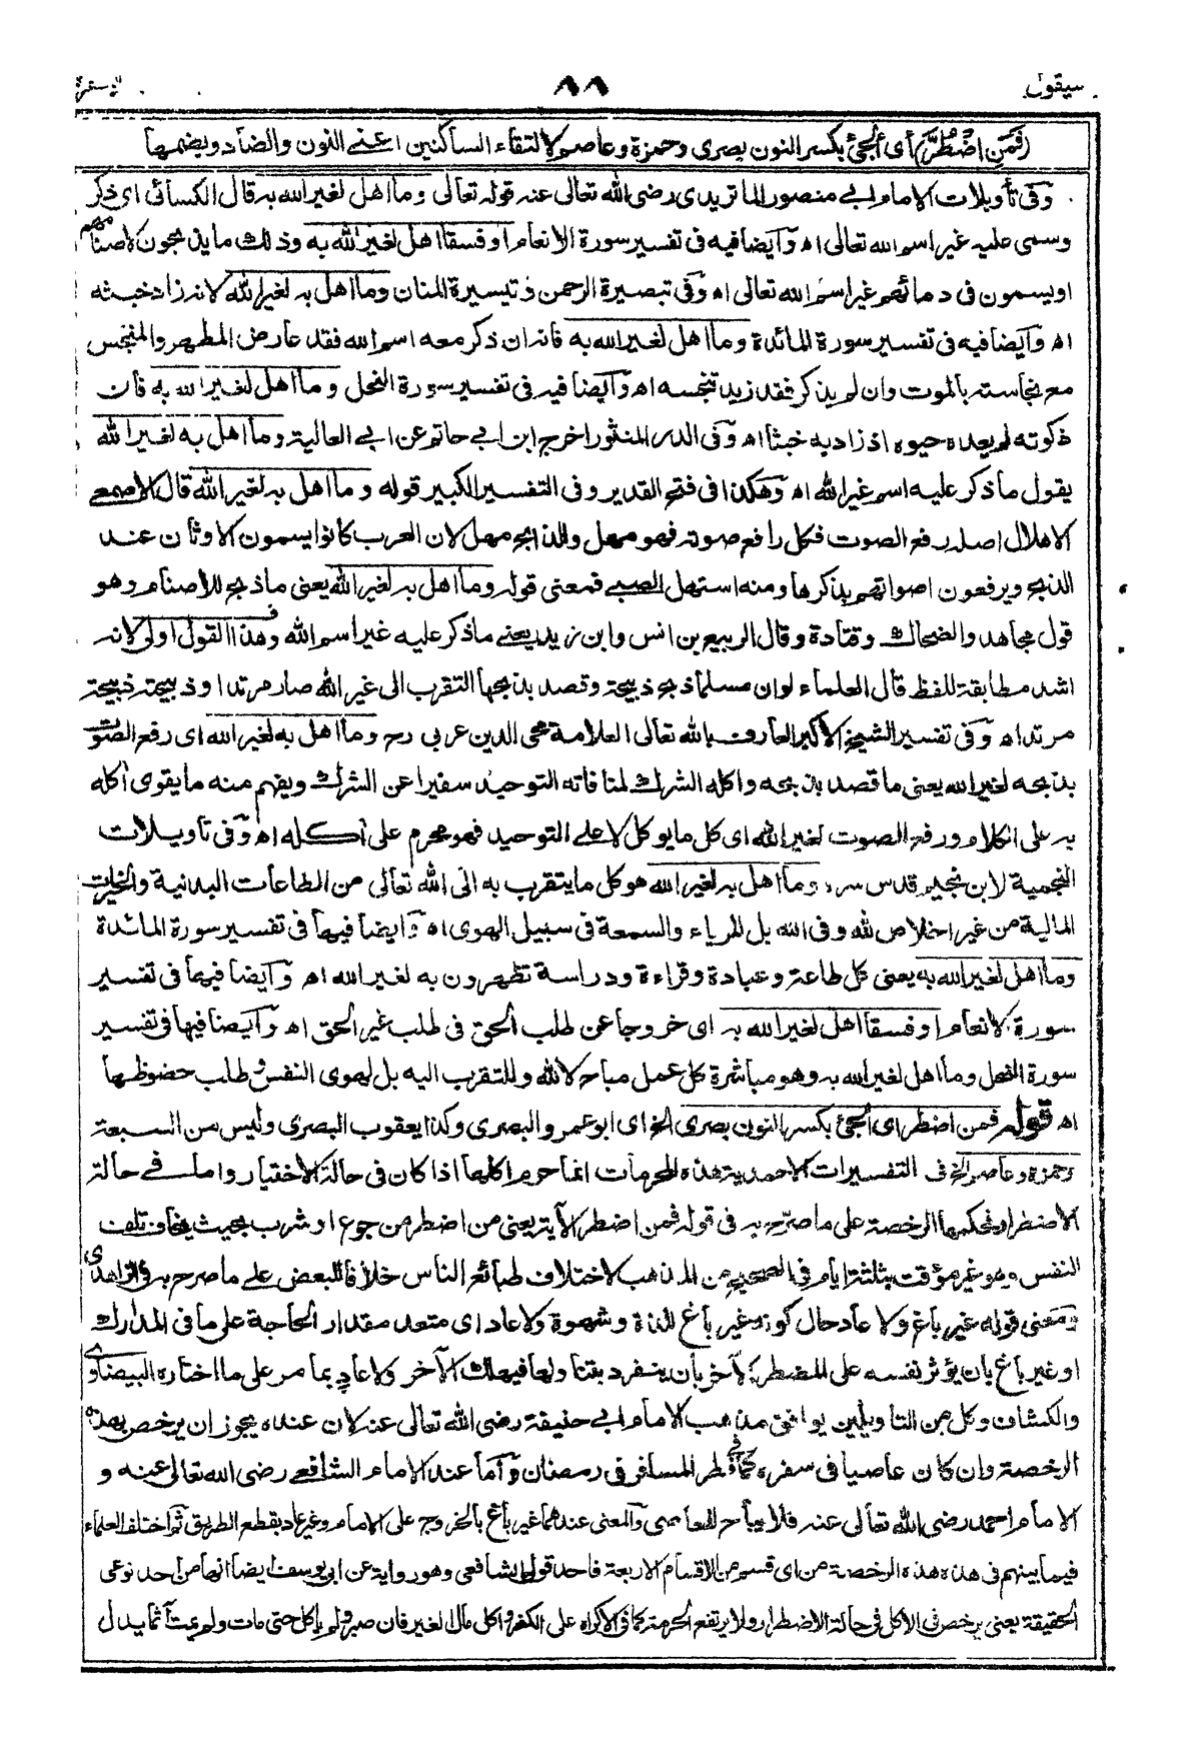 سيقول
٨٨
البقرة
(فَمَنِ اضْطُرَّ) أى ألجئ بكسر النون بصرى وحمزة وعاصم لالتقاء الساكنين اعنے النون والضاد وبضمها
وفى تأويلات الامام ابے منصور الماتريدى رضى الله تعالى عنه قوله تعالى وما اهل لغير الله به قال الكسائى اى ذكر
وسمى عليه غير اسم الله تعالى اه وأيضا فيه فى تفسير سورة الانعام او فسقا اهل لغير الله به وذلك ما يذبحون لاصنامهم
او يسمون فى دمائهم غير اسم الله تعالى اه وفى تبصيرة الرحمن وتيسيرة المنان وما اهل به لغير الله لانه زاد خبثه
اه وأيضا فيه فى تفسير سورة المائدة وما اهل لغير الله به فانه ان ذكر معه اسم الله فقد عارض المطهر والمنجس
مع نجاسته بالموت وان لم يذكر فقد زيد تنجسه اه وأيضا فيه فى تفسير سورة النحل وما اهل لغير الله به فان
ذكوته لم يعده حيوه اذ زاد به خبثا اه وفى الدر المنثور اخرج ابن ابے حاتم عن ابے العالية وما اهل به لغير الله
يقول ما ذكر عليه اسم غير الله اه وهكذا فى فتح القدير وفى التفسير الكبير قوله وما اهل به لغير الله قال الاصمعے
الاهلال اصله رفع الصوت فكل رافع صوته فهو مهل والذابح مهل لان العرب كانوا يسمون الاوثان عند
الذبح ويرفعون اصواتهم بذكرها ومنه استهل الصبے فمعنى قوله وما اهل به لغير الله يعنى ما ذبح للاصنام وهو
قول مجاهد والضحاك وقتادة وقال الربيع بن انس وابن زيد يعنے ما ذكر عليه غير اسم الله وهذا القول اولى لانه
اشد مطابقة للفظ قال العلماء لو ان مسلما ذبح ذبيحة وقصد بذبحها التقرب الى غير الله صار مرتدا وذبيحته ذبيحة
مرتد اه وفى تفسير الشيخ الأكبر العارف بالله تعالى العلامة محى الدين عربى رح وما اهل به لغير الله اى رفع الصوت
بذبحه لغير الله يعنى ما قصد بذبحه واكله الشرك لمنافاته التوحيد سفيرا عن الشرك ويفهم منه ما يقوى أكله
به على الكلام ورفع الصوت لغير الله اى كل ما يوكل لا علے التوحيد فهو محرم على أكله اه وفى تأويلات
النجمية لابن نجيم قدس سره وما اهل به لغير الله هو كل ما يتقرب به الى الله تعالى من الطاعات البدنية والخيرات
المالية من غير اخلاص لله وفى الله بل للرياء والسمعة فى سبيل الهوى اه وأيضا فيها فى تفسير سورة المائدة
وما اهل لغير الله به يعنى كل طاعة وعبادة وقراءة ودراسة تظهرون به لغير الله اه وأيضا فيها فى تفسير
سورة الانعام او فسقا اهل لغير الله به اى خروجا عن طلب الحق فى طلب غير الحق اه وأيضا فيها فى تفسير
سورة النحل وما اهل لغير الله به وهو مباشرة كل عمل مباح لا لله وللتقرب اليه بل لهوى النفس وطلب حضوظها
اه قوله فمن اضطر اى ألجئ بكسر النون بصرى الخ اى ابو عمرو البصرى وكذا يعقوب البصرى وليس من السبعة
وحمزة وعاصم الخ فى التفسيرات الاحمدية هذه المحرمات انما حرم اكلها اذا كان فى حالة الاختيار واما فے حالة
الاضطرار فحكمها الرخصة على ما صرح به فى قوله فمن اضطر الأية يعنى من اضطر من جوع او شرب بحيث يخاف تلف
النفس وهو غير مؤقت بثلثة ايام فى الصحيح من المذهب لاختلاف طبائع الناس خلافا للبعض علے ما صرح به فى الزاهدى
ومعنى قوله غير باغ ولا عاد حال كونه غير باغ للذة وشهوة ولا عاد اى متعد مقدار الحاجة على ما فى المدارك
او غير باغ بان يؤثر نفسه على المضطر الآخر بان ينفرد بتناولها فيهلك الآخر ولا عاد بما مر على ما اختاره البيضاوى
والكشاف وكل من التاويلين يوافق مذهب الامام ابے حنيفة رضى الله تعالى عنه لان عنده يجوز ان يرخص بهذه
الرخصة وان كان عاصيا فى سفره كما فى فطر المسافر فى رمضان وأما عند الامام الشافعے رضى الله تعالى عنه و
الامام احمد رضى الله تعالى عنه فلا يباح للعاصى والمعنى عندهما غير باغ بالخروج على الامام وغير عاد بقطع الطريق ثم اختلف العلماء
فيما بينهم فى هذه الرخصة من اى قسم من الاقسام الاربعة فاحد قولى الشافعى وهو رواية عن ابى يوسف ايضا انها من احد نوعى
الحقيقة يعنى يرخص فى الاكل فى حالة الاضطرار ولا يرتفع الحرمة كما فى الاكراه على الكفر واكل مال الغير فان صبر ولم يأكل حتى مات ولم يمت أثما يدل